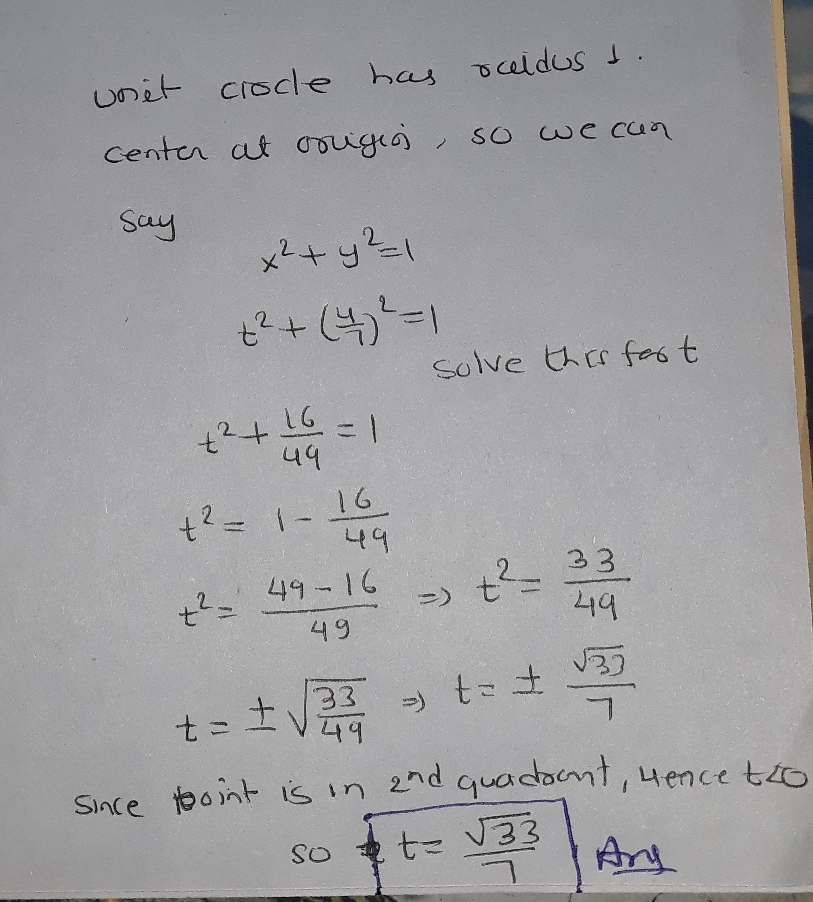 unit circle has radius 1.
center at origin, so we can
say
x²+y²=1
t²+(4/7)²=1
solve this for t
t²+16/49=1
t²=1-16/49
t²=49-16/49 ⇒ t²=33/49
t=±√33/49 ⇒ t=±√33/7
Since point is in 2nd quadrant, Hence t<0
so t=√33/7 Ans